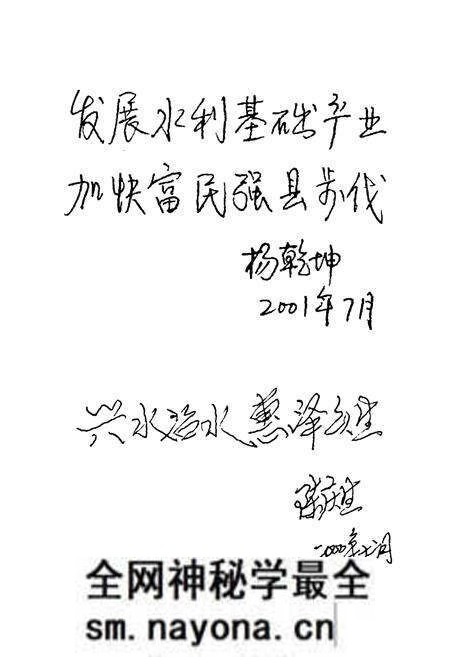 发展水利基础产业
加快富民强县步伐
杨乾坤
2001年7月
兴水治水 惠泽众生
庆生
全网神秘学最全
sm.nayona.cn